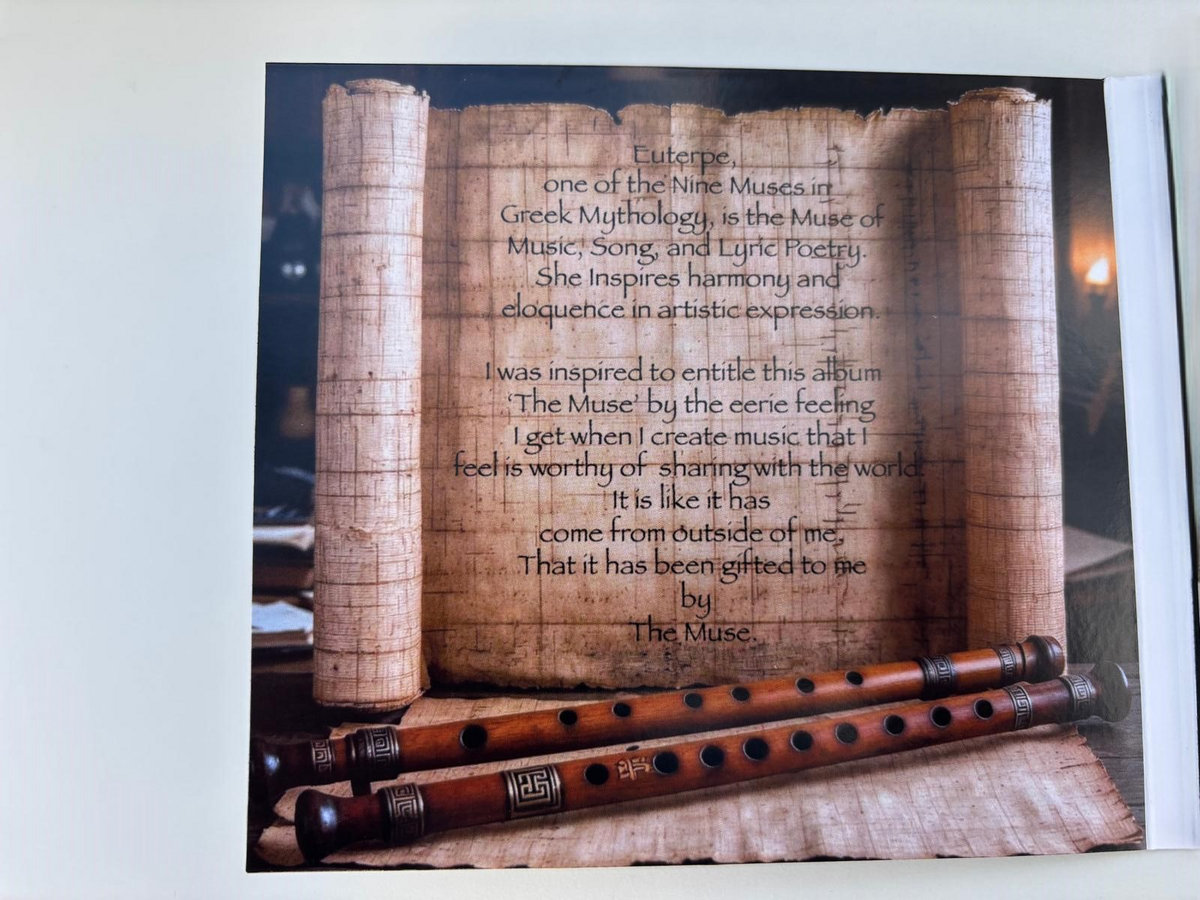 Euterpe,
one of the Nine Muses in
Greek Mythology, is the Muse of
Music, Song, and Lyric Poetry.
She Inspires harmony and
eloquence in artistic expression.
I was inspired to entitle this album
‘The Muse’ by the eerie feeling
I get when I create music that I
feel is worthy of sharing with the world.
It is like it has
come from outside of me,
That it has been gifted to me
by
The Muse.